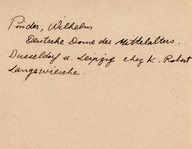 Pinder, Wilhelm
Deutsche Dome des Mittelalters.
Dusseldorf u. Leipzig chez K. Robert
Langewiesche.